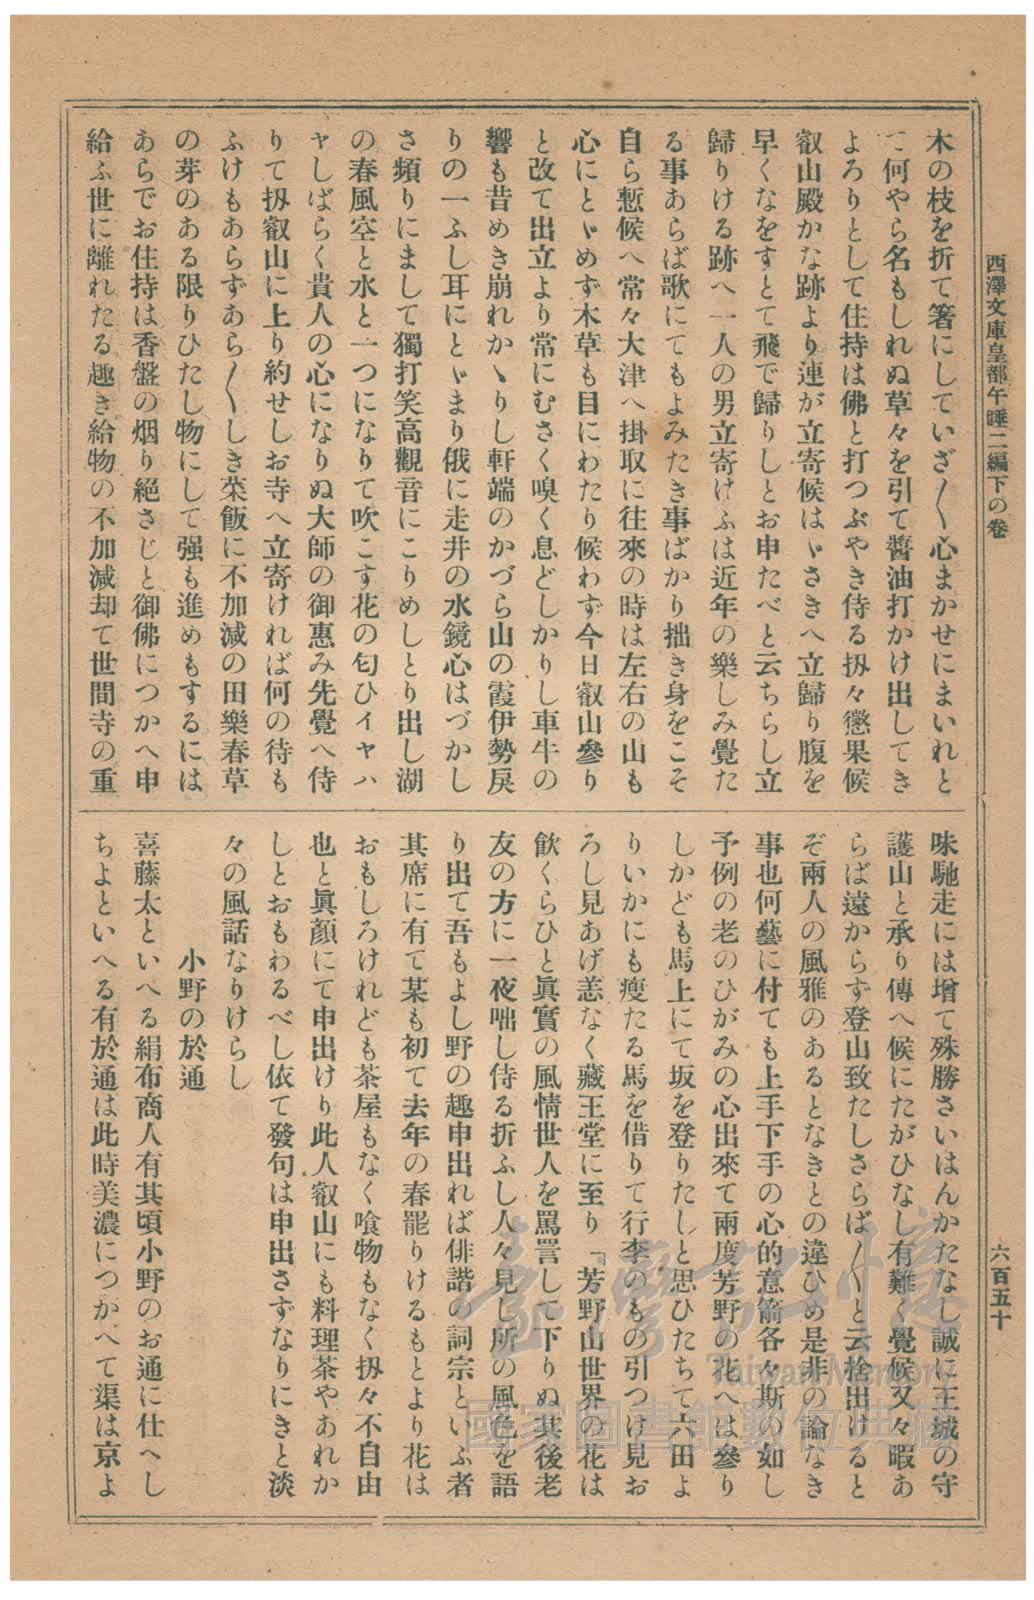 西澤文庫皇都午睡二編下の卷
六百五十
木の枝を折て箸にしていざ〱心まかせにまいれと
て何やら名もしれぬ草々を引て醬油打かけ出してき
よろりとして住持は佛と打つぶやき侍る扨々懲果候
叡山殿かな跡より連が立寄候はゞさきへ立歸り腹を
早くなをすとて飛で歸りしとお申たべと云ちらし立
歸りける跡へ一人の男立寄けふは近年の樂しみ覺た
る事あらば歌にてもよみたき事ばかり拙き身をこそ
自ら慙候へ常々大津へ掛取に往來の時は左右の山も
心にとゞめず木草も目にわたり候わず今日叡山參り
と改て出立より常にむさく嗅く息どしかりし車牛の
響も昔めき崩れかゝりし軒端のかづら山の霞伊勢戾
りの一ふし耳にとゞまり俄に走井の水鏡心はづかし
さ頻りにまして獨打笑高觀音にこりめしとり出し湖
の春風空と水と一つになりて吹こす花の匂ひイヤハ
ヤしばらく貴人の心になりぬ大師の御惠み先覺へ侍
りて扨叡山に上り約せしお寺へ立寄ければ何の待も
ふけもあらずあら〱しき菜飯に不加減の田樂春草
の芽のある限りひたし物にして强も進めもするには
あらでお住持は香盤の烟り絕さじと御佛につかへ申
給ふ世に離れたる趣き給物の不加減却て世間寺の重
味馳走には增て殊勝さいはんかたなし誠に王城の守
護山と承り傳へ候にたがひなし有難く覺候又々暇あ
らば遠からず登山致たしさらば〱と云捨出けると
ぞ兩人の風雅のあるとなきとの違ひめ是非の論なき
事也何藝に付ても上手下手の心的意箭各々斯の如し
予例の老のひがみの心出來て兩度芳野の花へは參り
しかども馬上にて坂を登りたしと思ひたちて六田よ
りいかにも瘦たる馬を借りて行李のもの引つけ見お
ろし見あげ恙なく藏王堂に至り「芳野山世界の花は
飮くらひと眞實の風情世人を罵詈して下りぬ其後老
友の方に一夜咄し侍る折ふし人々見し所の風色を語
り出て吾もよし野の趣申出れば俳諧の詞宗といふ者
其席に有て某も初て去年の春罷りけるもとより花は
おもしろけれども茶屋もなく喰物もなく扨々不自由
也と眞顏にて申出けり此人叡山にも料理茶やあれか
しとおもわるべし依て發句は申出さずなりにきと淡
々の風話なりけらし
小野の於通
喜藤太といへる絹布商人有其頃小野のお通に仕へし
ちよといへる有於通は此時美濃につかへて渠は京よ
臺灣記憶
Taiwan Memory
國家圖書館數位典藏